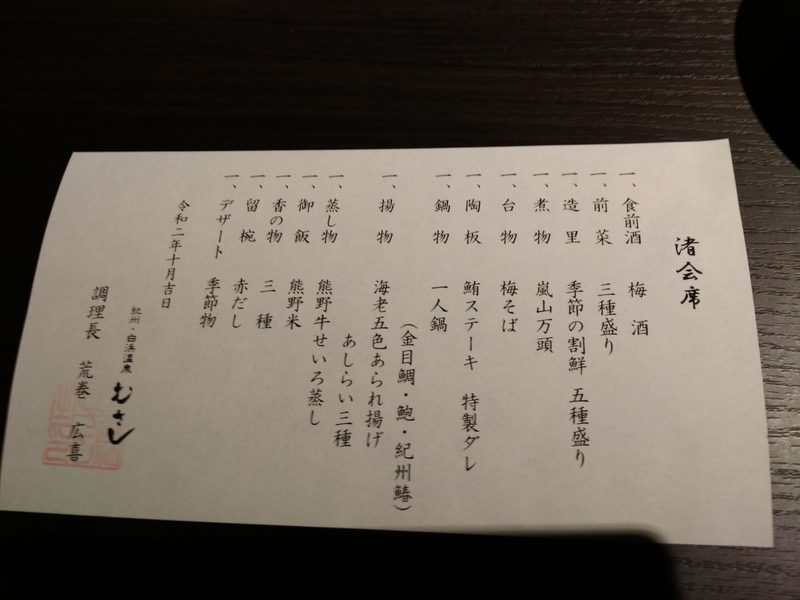 渚会席
一、食前酒 梅酒
一、前菜 三種盛り
一、造里 季節の割鮮 五種盛り
一、煮物 嵐山万頭
一、台物 梅そば
一、陶板 鮪ステーキ 特製ダレ
一、鍋物 一人鍋
（金目鯛・鮑・紀州鰆）
一、揚物 海老五色あられ揚げ
あしらい三種
一、蒸し物 熊野牛せいろ蒸し
一、御飯 熊野米
一、香の物 三種
一、留椀 赤だし
一、デザート 季節物
令和二年十月吉日
紀州・白浜温泉 むさし
調理長 荒巻 広喜